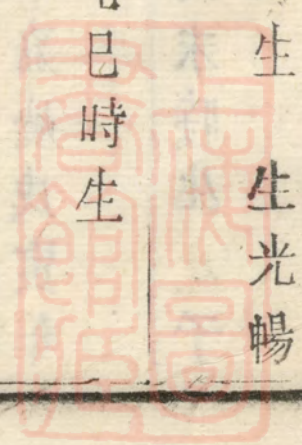 生 生光暢
巳時生
上海圖書館藏